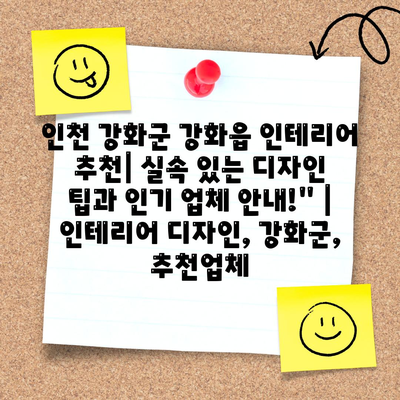 인천 강화군 강화읍 인테리어
추천| 실속 있는 디자인
팁과 인기 업체 안내!" |
인테리어 디자인, 강화군,
추천업체